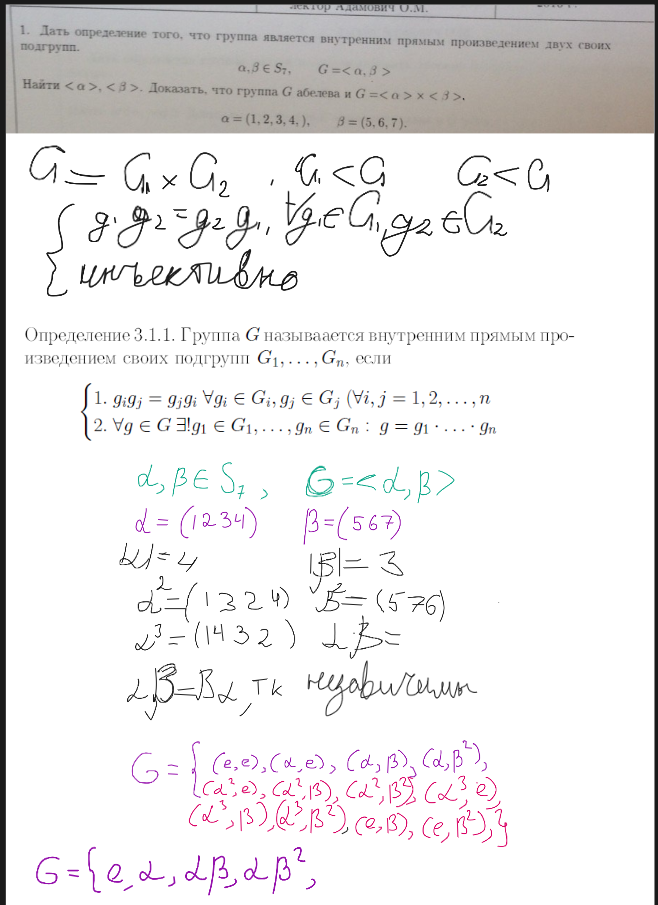 лектор Адамович О.М.
1. Дать определение того, что группа является внутренним прямым произведением двух своих
подгрупп.
α,β ∈ S₇, G =< α, β >
Найти < α >, < β >. Доказать, что группа G абелева и G =< α > × < β >.
α = (1, 2, 3, 4, ), β = (5, 6, 7).
G = G₁ × G₂ , G₁ < G G₂ < G
{ g₁ g₂ = g₂ g₁, ∀g₁ ∈ G₁, g₂ ∈ G₂
{ инъективно
Определение 3.1.1. Группа G называается внутренним прямым про-
изведением своих подгрупп G₁, . . . , Gₙ, если
{ 1. gᵢgⱼ = gⱼgᵢ ∀gᵢ ∈ Gᵢ, gⱼ ∈ Gⱼ (∀i, j = 1, 2, . . . , n
2. ∀g ∈ G ∃!g₁ ∈ G₁, . . . , gₙ ∈ Gₙ : g = g₁ · . . . · gₙ
α, β ∈ S₇ , G = <α, β>
α = (1234) β = (567)
|α| = 4 |β| = 3
α² = (1324) β² = (576)
α³ = (1432) αβ =
αβ = βα, тк независимы
G = { (e,e), (α,e), (α,β), (α,β²),
(α²,e), (α²,β), (α²,β²), (α³,e),
(α³,β), (α³,β²), (e,β), (e,β²), }
G = {e, α, αβ, αβ²,